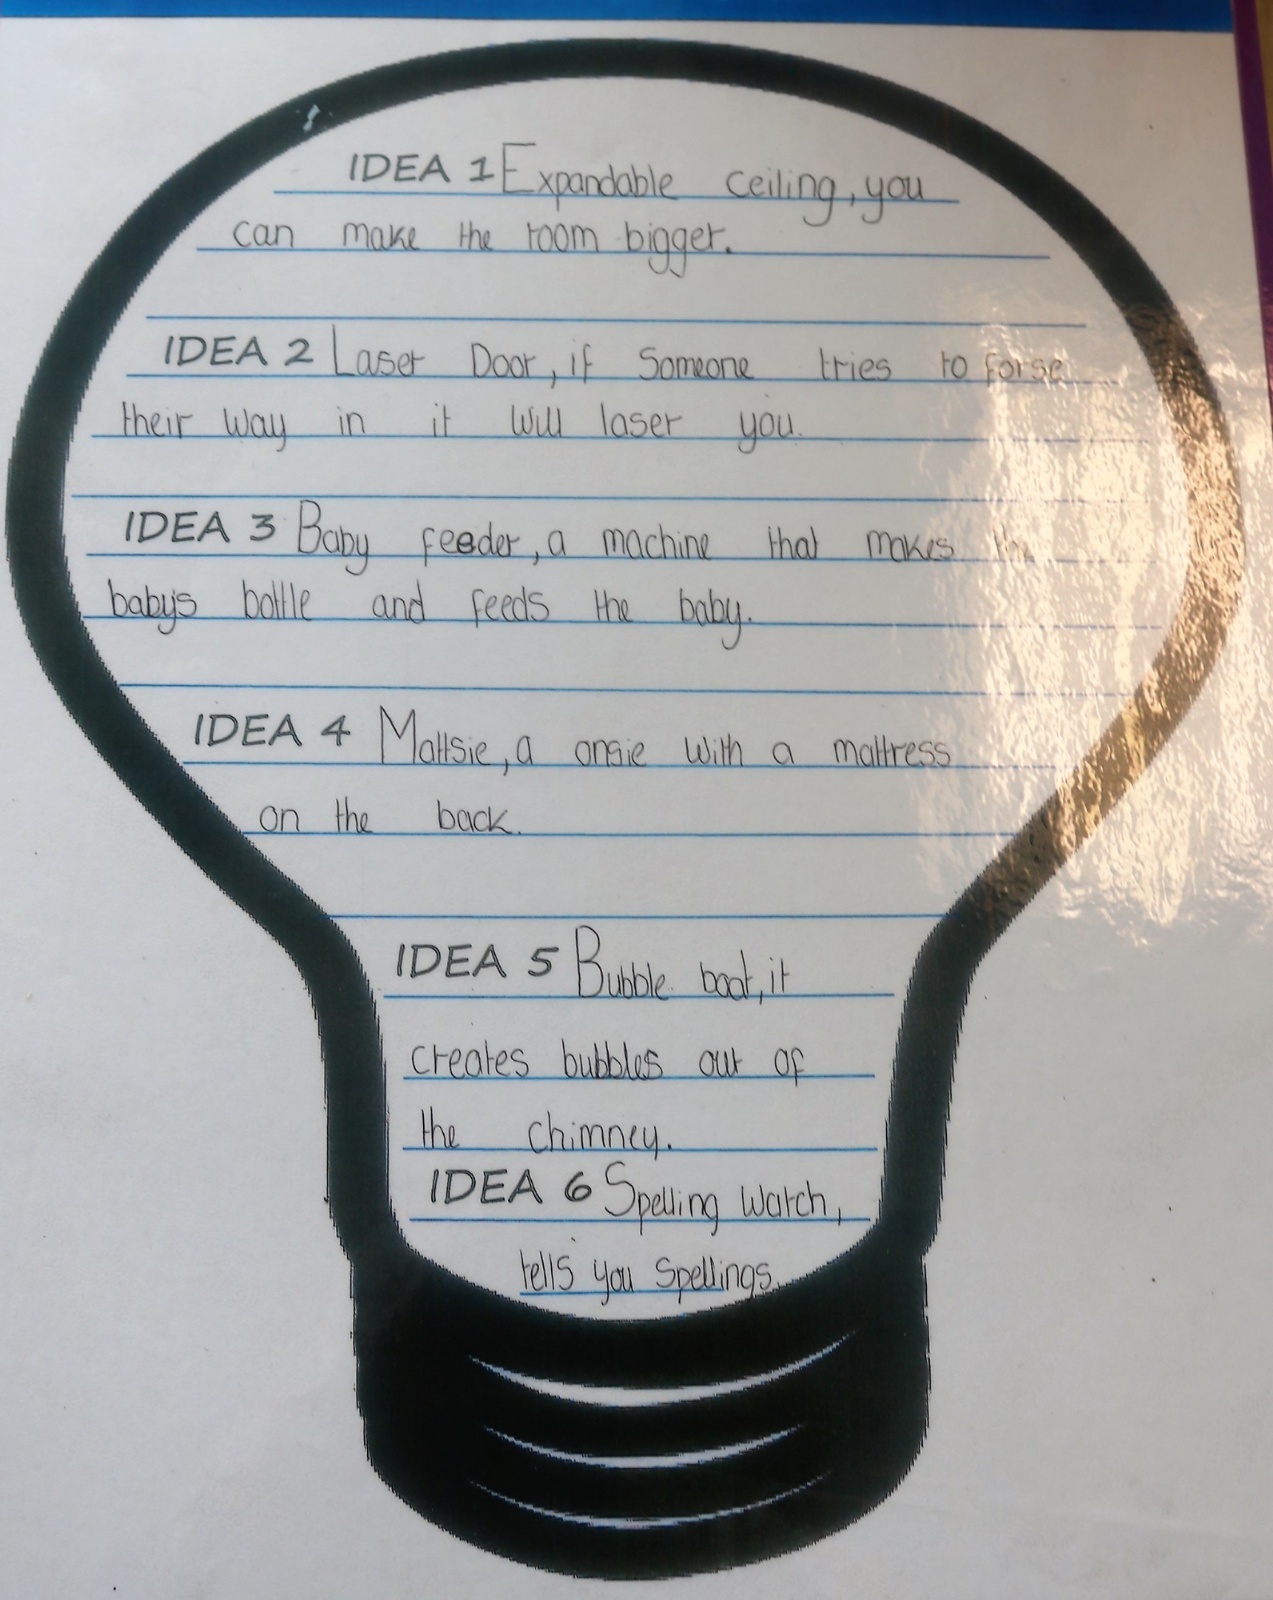 IDEA 1 Expandable ceiling, you
can make the room bigger.
IDEA 2 Laser Door, if Someone tries to forse
their way in it will laser you.
IDEA 3 Baby feeder, a machine that makes the
babys bottle and feeds the baby.
IDEA 4 Mattsie, a onsie with a mattress
on the back.
IDEA 5 Bubble boat, it
creates bubbles out of
the chimney.
IDEA 6 Spelling Watch,
tells you spellings.